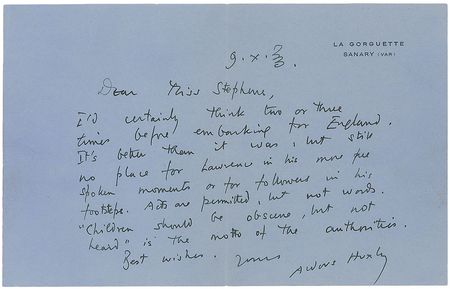 LA GORGUETTE
SANARY (VAR)
9.X.33.
Dear Miss Stephens,
I'd certainly think two or three
times before embarking for England.
It's better than it was, but still
no place for Lawrence in his more free
spoken moments or for followers in his
footsteps. Acts are permitted, but not words.
"Children should be obscene, but not
heard" is the motto of the authorities.
Best wishes. Yours
Aldous Huxley